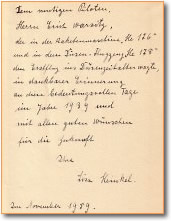 Dem mutigen Piloten,
Herrn Erich Warsitz,
der in der Raketenmaschine, He 176"
und in dem Düsen-Flugzeug, He 178"
den Erstflug im Düsenzeitalter wagte,
in dankbarer Erinnerung
an diese bedeutungsvollen Tage
im Jahre 1939 und
mit allen guten Wünschen
für die Zukunft
Ihre
Lisa Heinkel.
Im November 1989.